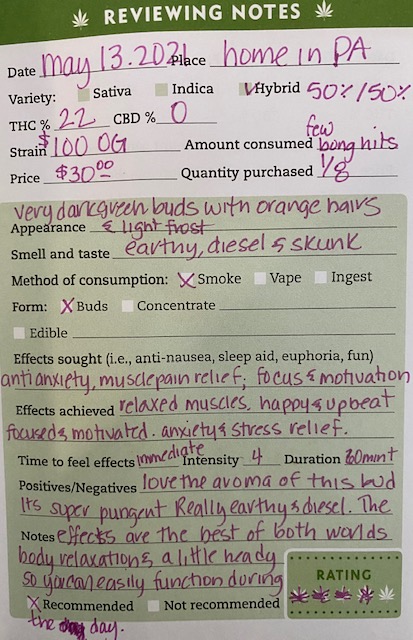 REVIEWING NOTES
Date May 13. 2021 Place home in PA
Variety: Sativa Indica Hybrid 50%/50%
THC % 22 CBD % 0
Strain $100 OG Amount consumed few bong hits
Price $30.00 Quantity purchased 1/8
very darkgreen buds with orange hairs
Appearance & light frost
Smell and taste earthy, diesel & skunk
Method of consumption: X Smoke Vape Ingest
Form: X Buds Concentrate
Edible
Effects sought (i.e., anti-nausea, sleep aid, euphoria, fun)
anti anxiety, muscle pain relief, focus & motivation
Effects achieved relaxed muscles. happy & upbeat
focused & motivated. anxiety & stress relief.
Time to feel effects immediate Intensity 4 Duration 60min+
Positives/Negatives love the aroma of this bud
Its super pungent Really earthy & diesel. The
Notes effects are the best of both worlds
body relaxation & a little heady
so you can easily function during
RATING
X Recommended Not recommended
the day.